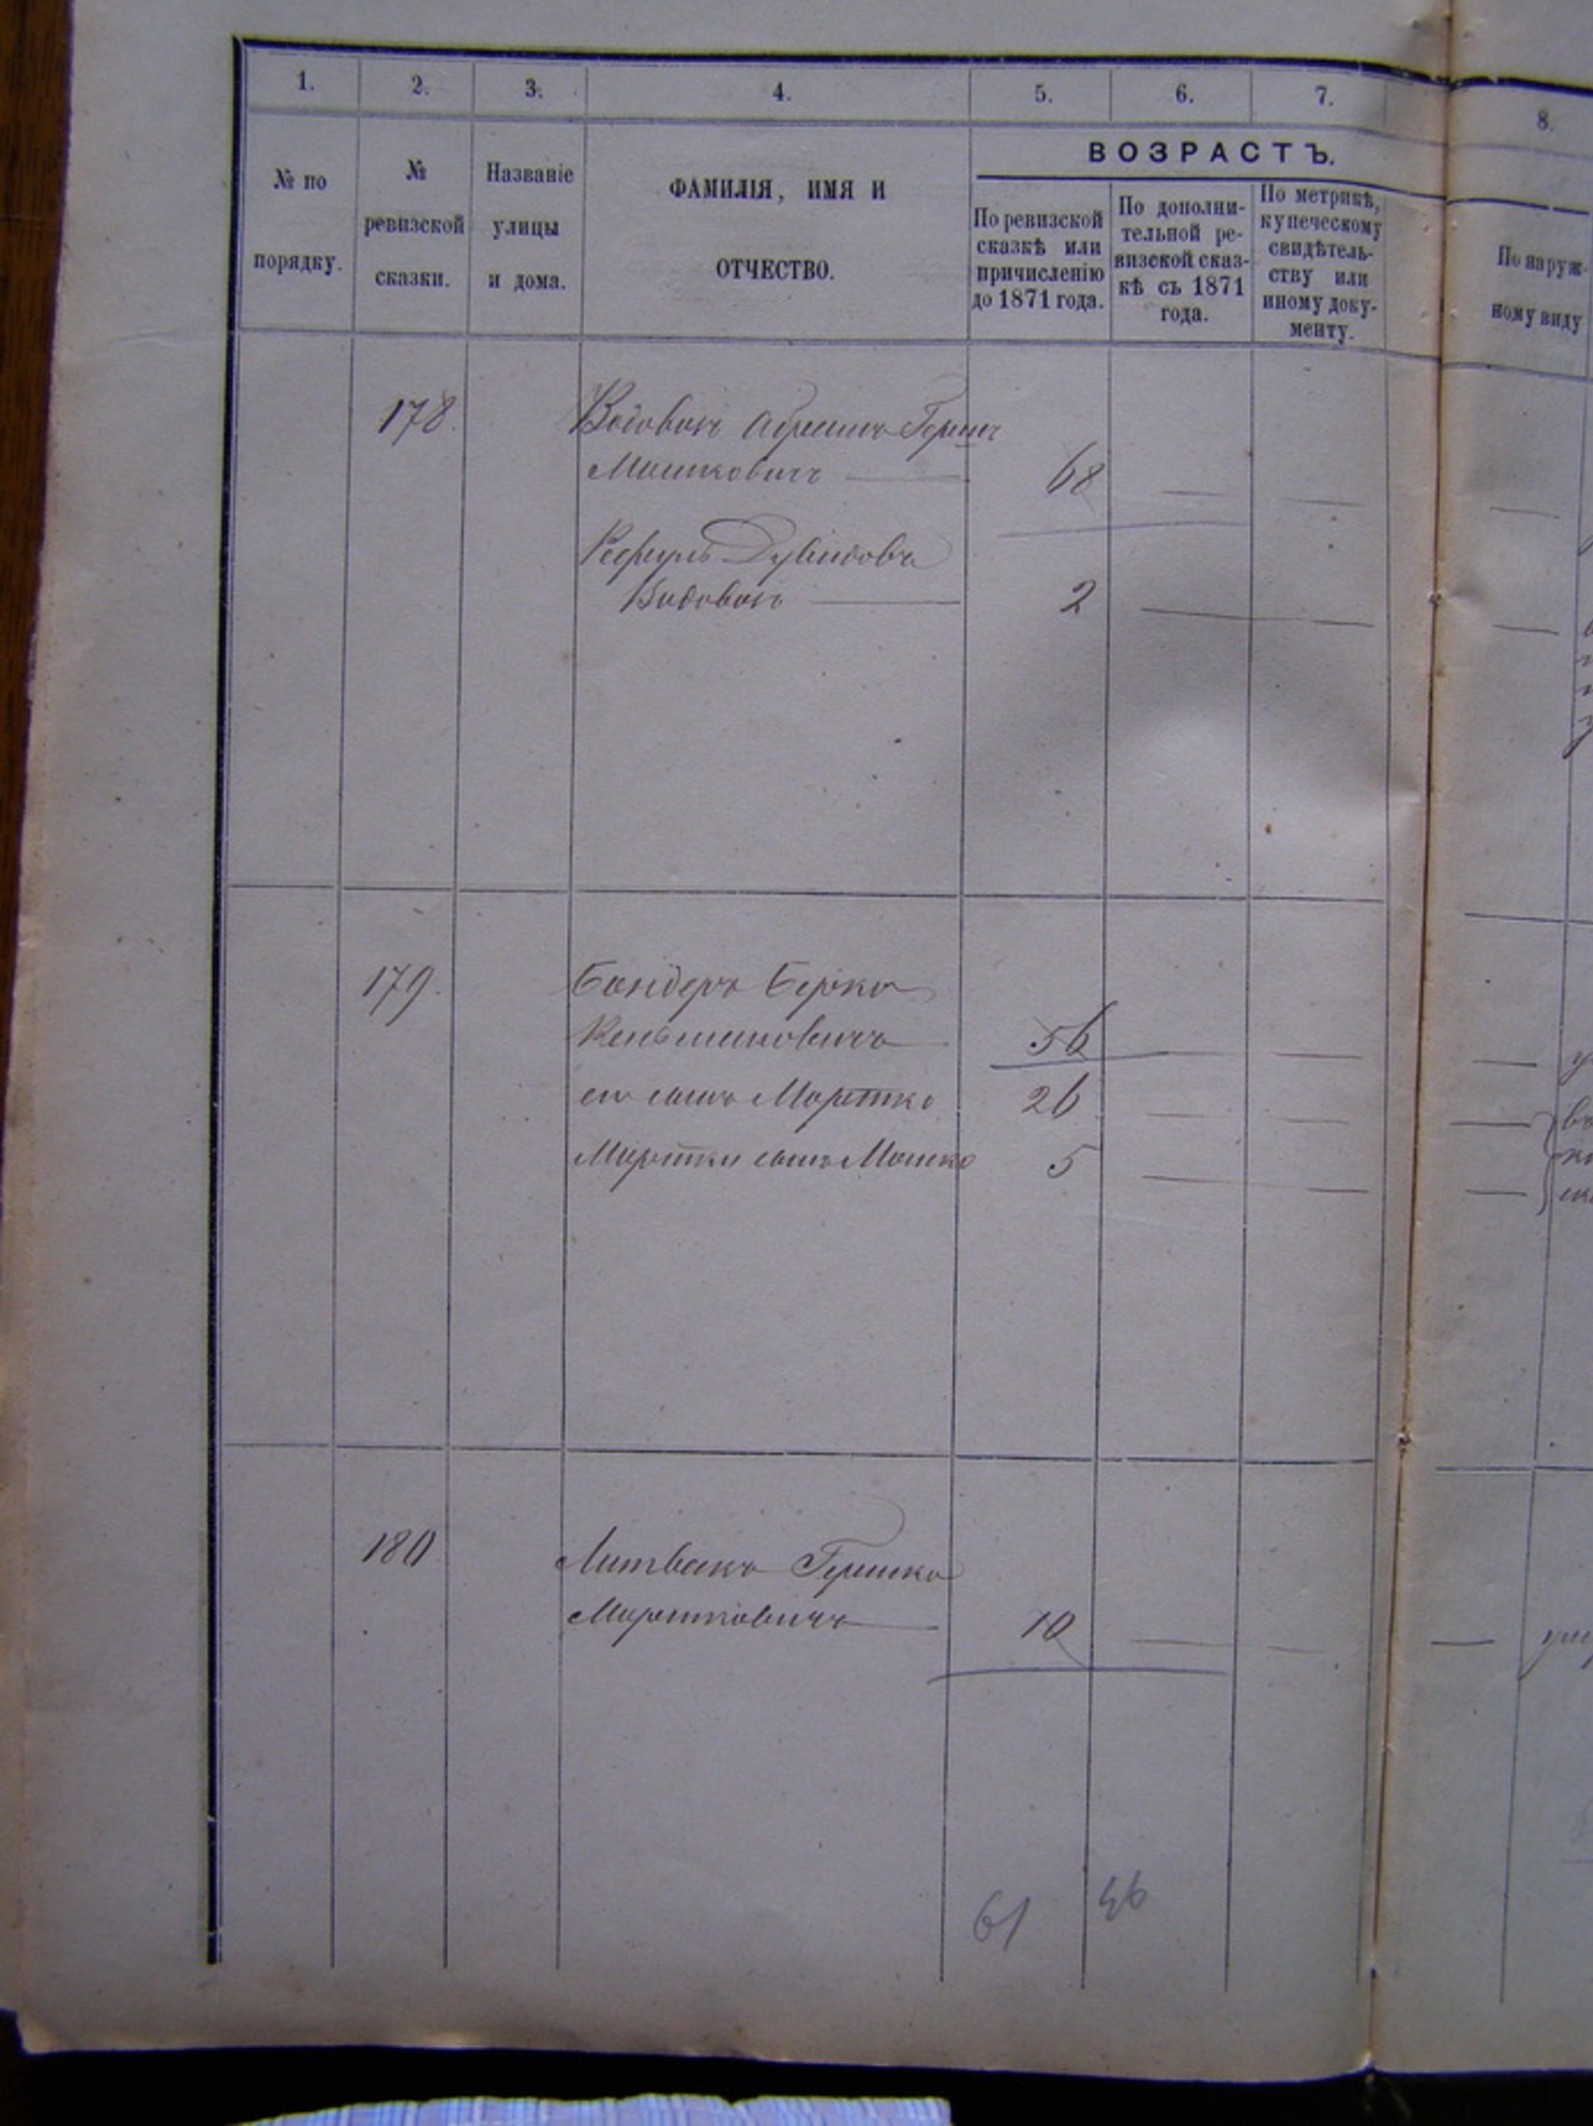 1.
2.
3.
4.
5.
6.
7.
8.
№ по
порядку.
№
ревизской
сказки.
Названіе
улицы
и дома.
ФАМИЛІЯ, ИМЯ И
ОТЧЕСТВО.
ВОЗРАСТЪ.
По ревизской
сказкѣ или
причисленію
до 1871 года.
По дополни-
тельной ре-
визской сказ-
кѣ съ 1871
года.
По метрикѣ,
купеческому
свидѣтель-
ству или
иному доку-
менту.
По наруж-
ному виду
178.
Абрамъ Герш
Мошковичъ 68
Дувидовъ
2
179.
Бондеръ Берко
56
его сынъ Мортко 26
Мортки сынъ Мошко 5
180
Литвакъ Гершко
Мортковичъ 10
61 36